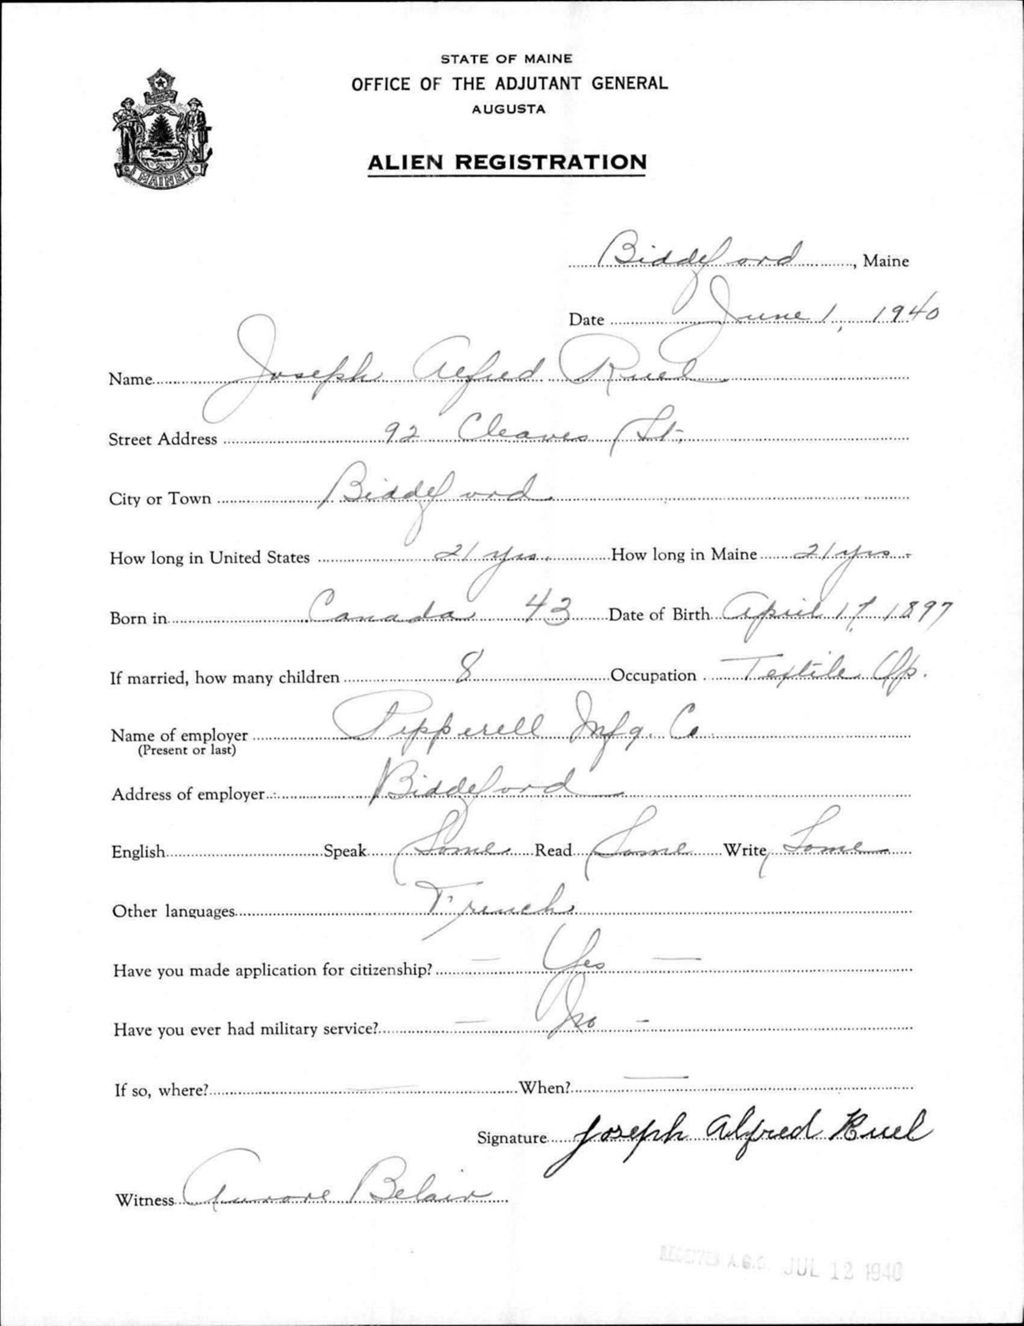 STATE OF MAINE
OFFICE OF THE ADJUTANT GENERAL
AUGUSTA
ALIEN REGISTRATION
MAINE
Biddeford, Maine
Date June 1, 1940
Name Joseph Alfred Ruel
Street Address 92 Cleaves St.
City or Town Biddeford
How long in United States 21 yrs. How long in Maine 21 yrs.
Born in Canada 43 Date of Birth April 17, 1897
If married, how many children 8 Occupation Textile Op.
Name of employer Pepperell Mfg. Co.
(Present or last)
Address of employer Biddeford
English Speak Some Read Some Write Some
Other languages French
Have you made application for citizenship? — Yes —
Have you ever had military service? — No —
If so, where? — When? —
Signature Joseph Alfred Ruel
Witness Aurore Belair
RECEIVED A.G.O. JUL 12 1940